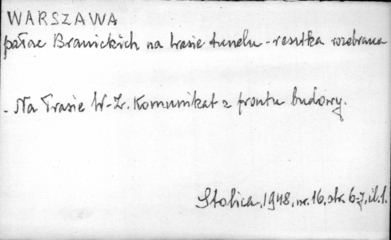 WARSZAWA
pałac Branickich na trasie tunelu - resztka rozebrana
- Na Trasie W-Z. Komunikat z frontu budowy.
Stolica, 1948, nr. 16, str. 6-7, il. 1.